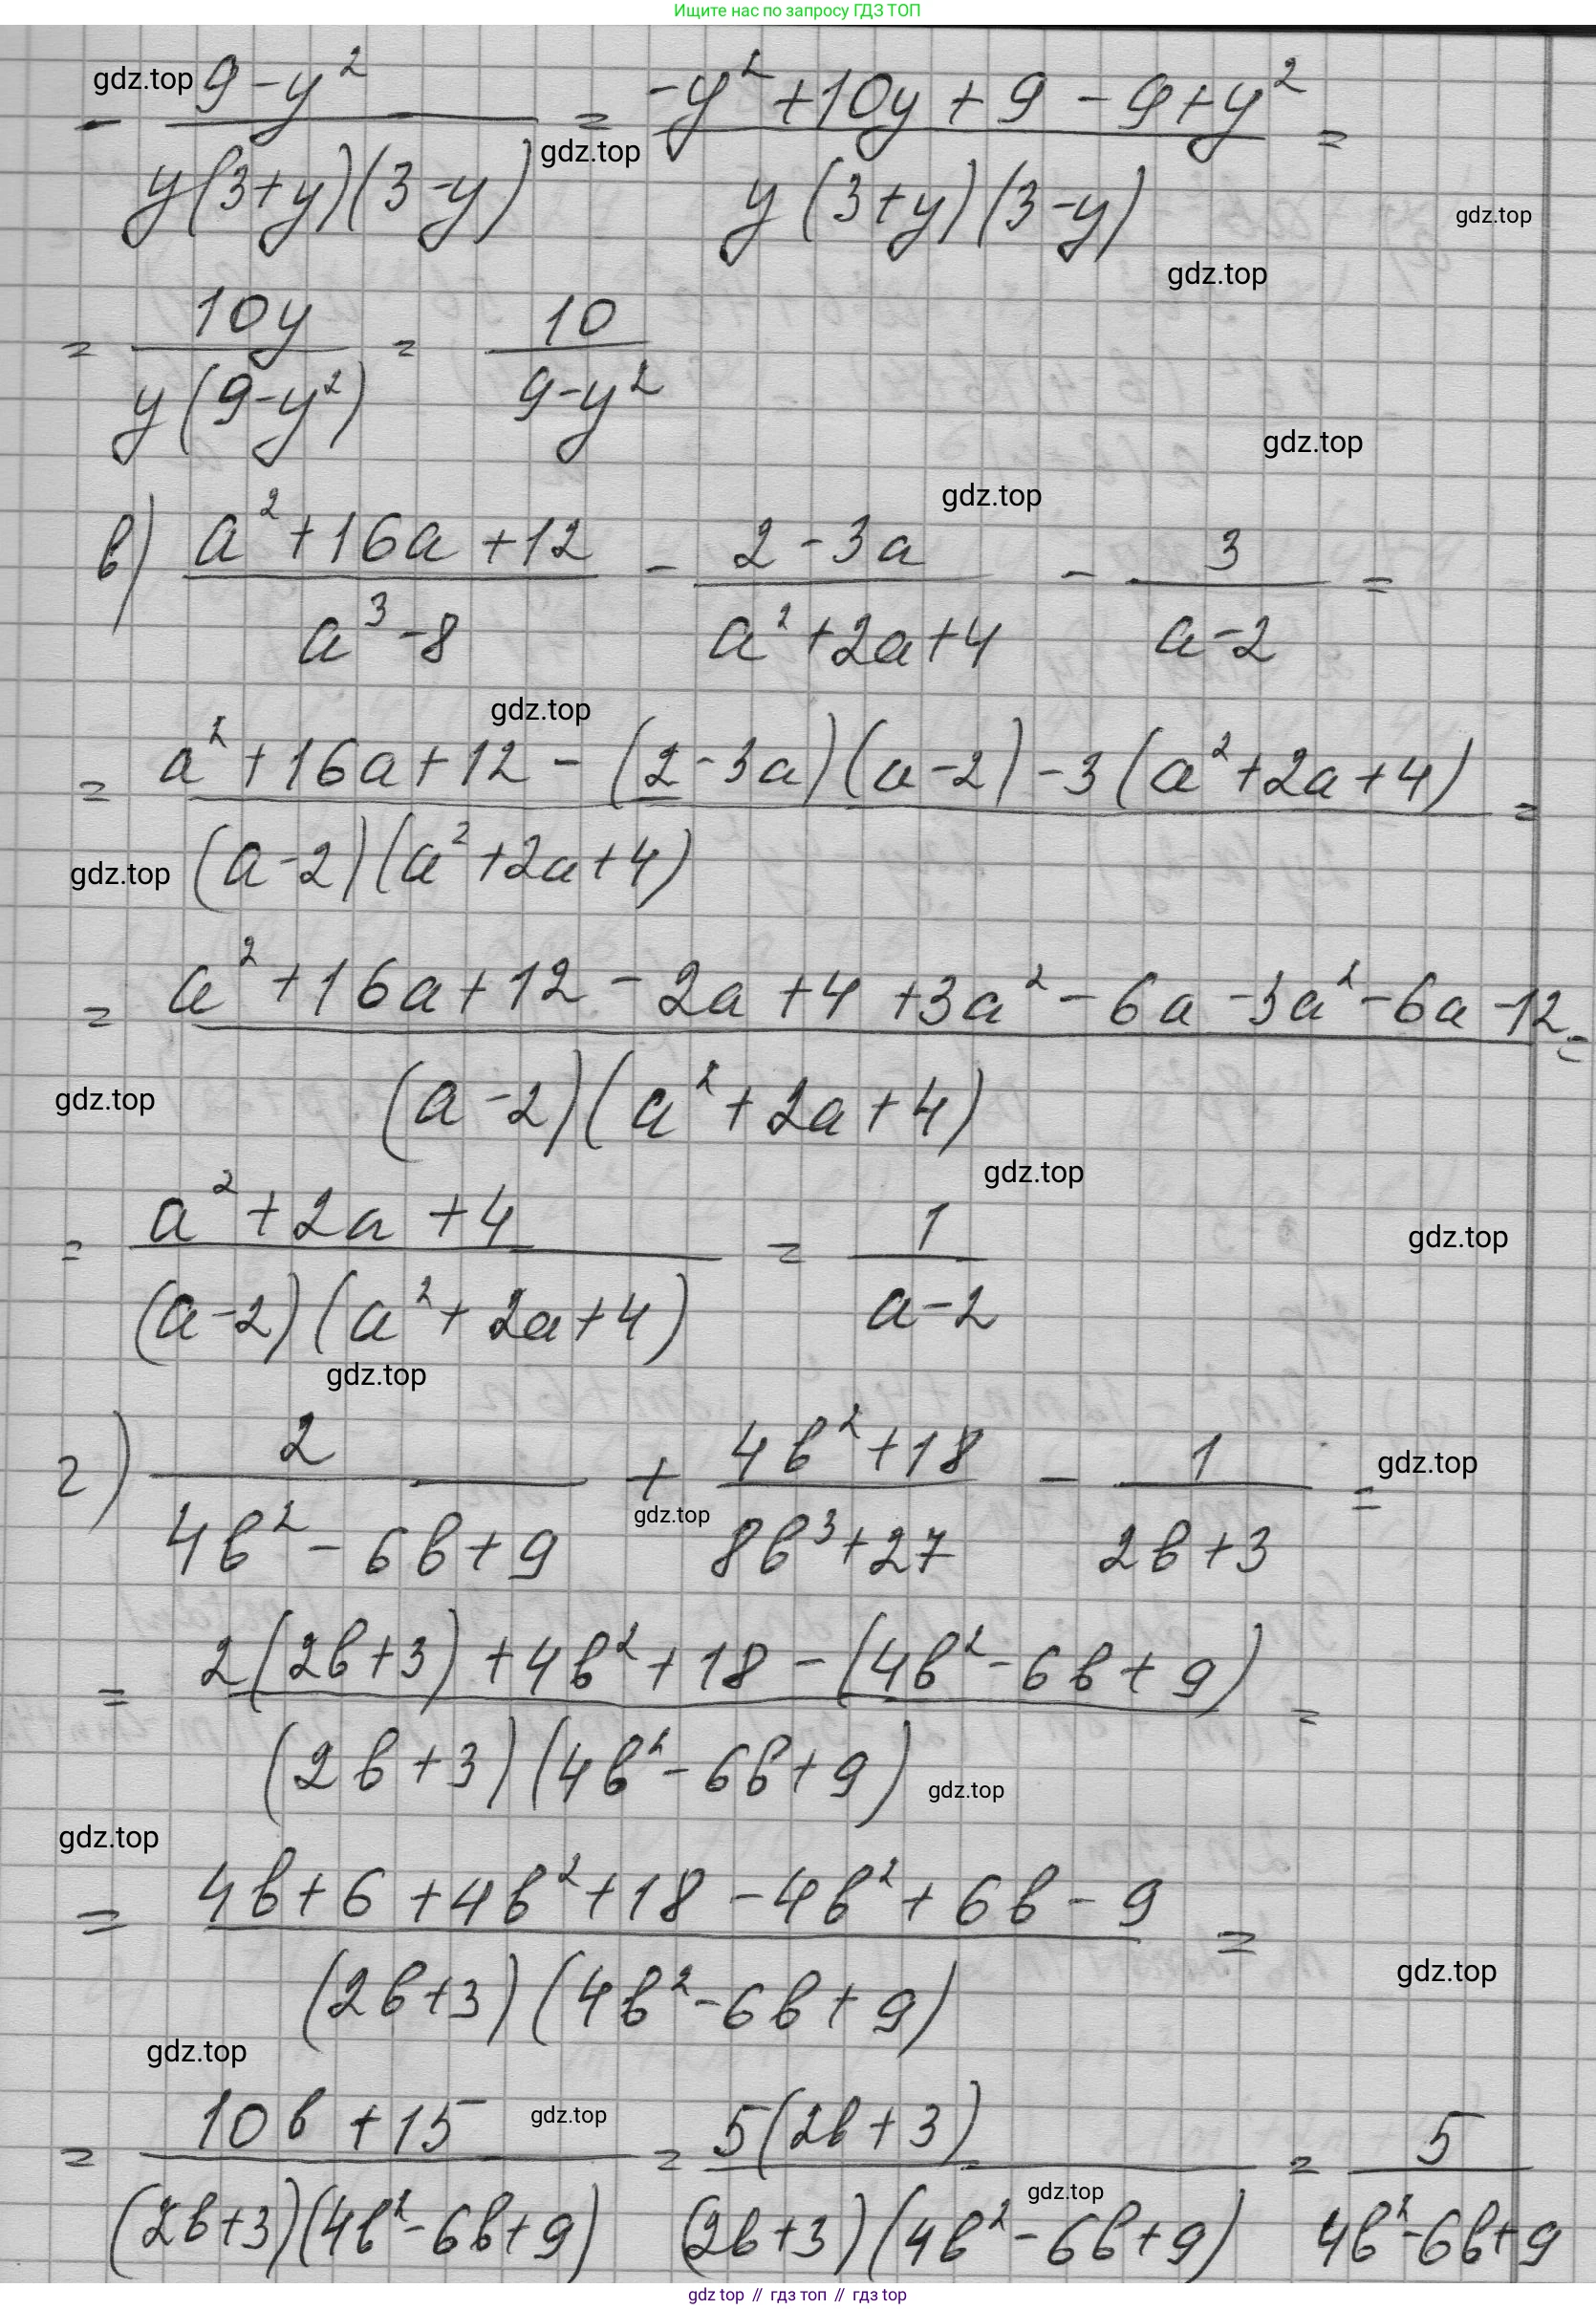 Ищите нас по запросу ГДЗ ТОП
gdz.top
- (9-y²)/(y(3+y)(3-y)) = (-y²+10y+9-9+y²)/(y(3+y)(3-y)) =
gdz.top
gdz.top
gdz.top
= 10y/(y(9-y²)) = 10/(9-y²)
gdz.top
gdz.top
в) (a²+16a+12)/(a³-8) - (2-3a)/(a²+2a+4) - 3/(a-2) =
gdz.top
= (a²+16a+12-(2-3a)(a-2)-3(a²+2a+4))/((a-2)(a²+2a+4)) =
gdz.top
= (a²+16a+12-2a+4+3a²-6a-3a²-6a-12)/((a-2)(a²+2a+4)) =
gdz.top
gdz.top
= (a²+2a+4)/((a-2)(a²+2a+4)) = 1/(a-2)
gdz.top
gdz.top
г) 2/(4b²-6b+9) + (4b²+18)/(8b³+27) - 1/(2b+3) =
gdz.top
gdz.top
= (2(2b+3)+4b²+18-(4b²-6b+9))/((2b+3)(4b²-6b+9)) =
gdz.top
gdz.top
= (4b+6+4b²+18-4b²+6b-9)/((2b+3)(4b²-6b+9)) =
gdz.top
gdz.top
= (10b+15)/((2b+3)(4b²-6b+9)) = 5(2b+3)/((2b+3)(4b²-6b+9)) = 5/(4b²-6b+9)
gdz.top
gdz.top
gdz top // гдз топ // gdz top